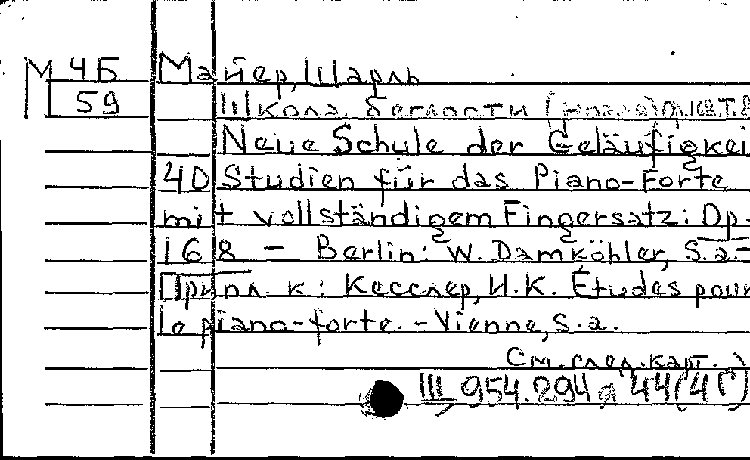 М 4Б Майер, Шарль
59 Школа беглости
Neue Schule der Geläufigkei
40 Studien für das Piano-Forte
mit vollständigem Fingersatz: Op.
168 – Berlin: W. Damköhler, S.a.=
Припл. к: Кесслер, И.К. Études pour
le piano-forte. – Vienne, s.a.
См. след. карт.
III, 954.294 а 44(4Г)